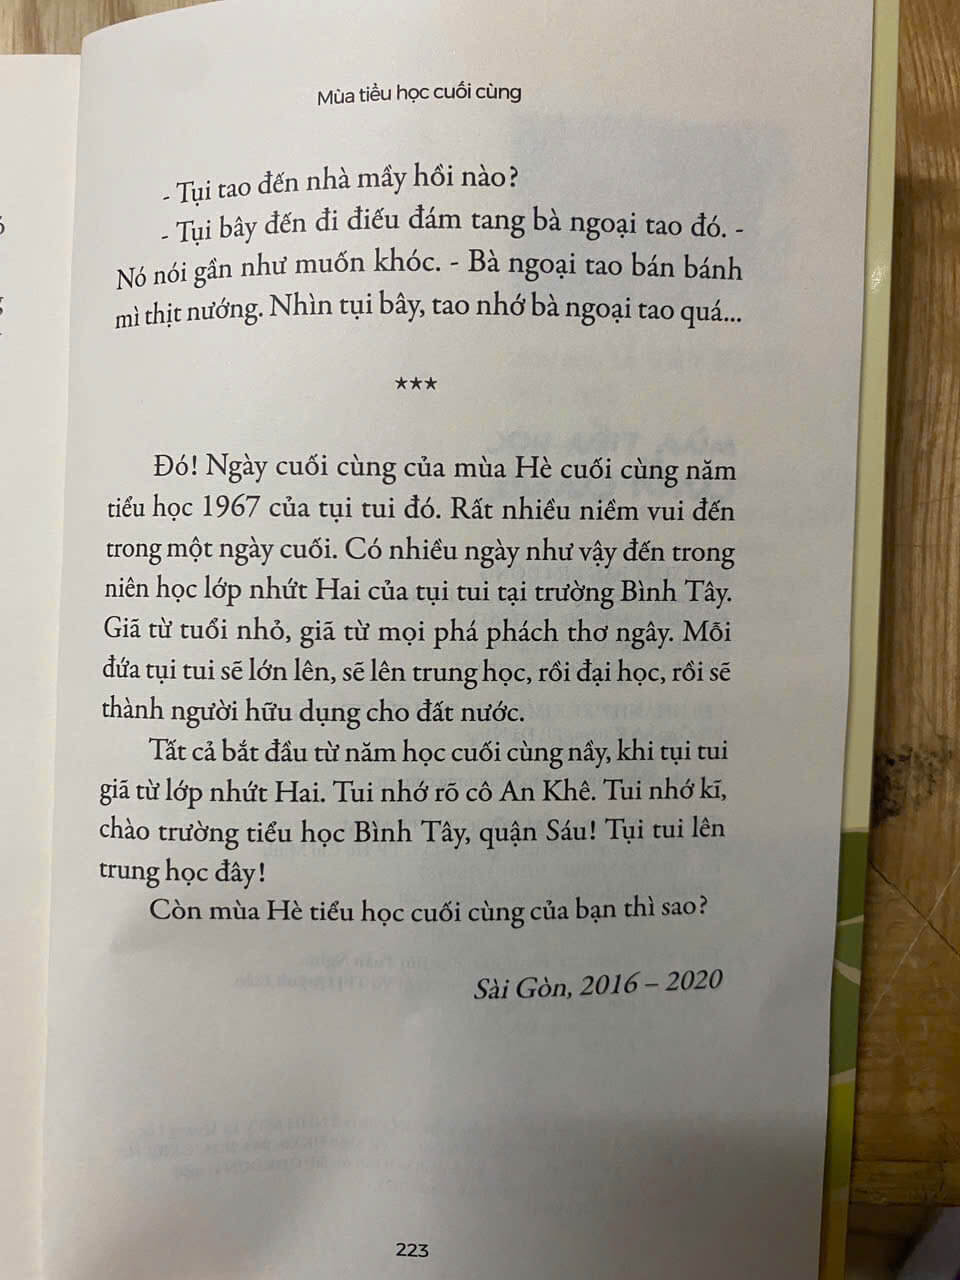 Mùa tiểu học cuối cùng
- Tụi tao đến nhà mầy hồi nào?
- Tụi bây đến đi điếu đám tang bà ngoại tao đó. -
Nó nói gần như muốn khóc. - Bà ngoại tao bán bánh
mì thịt nướng. Nhìn tụi bây, tao nhớ bà ngoại tao quá...
***
Đó! Ngày cuối cùng của mùa Hè cuối cùng năm
tiểu học 1967 của tụi tui đó. Rất nhiều niềm vui đến
trong một ngày cuối. Có nhiều ngày như vậy đến trong
niên học lớp nhứt Hai của tụi tui tại trường Bình Tây.
Giã từ tuổi nhỏ, giã từ mọi phá phách thơ ngây. Mỗi
đứa tụi tui sẽ lớn lên, sẽ lên trung học, rồi đại học, rồi sẽ
thành người hữu dụng cho đất nước.
Tất cả bắt đầu từ năm học cuối cùng nầy, khi tụi tui
giã từ lớp nhứt Hai. Tui nhớ rõ cô An Khê. Tui nhớ kĩ,
chào trường tiểu học Bình Tây, quận Sáu! Tụi tui lên
trung học đây!
Còn mùa Hè tiểu học cuối cùng của bạn thì sao?
Sài Gòn, 2016 – 2020
223